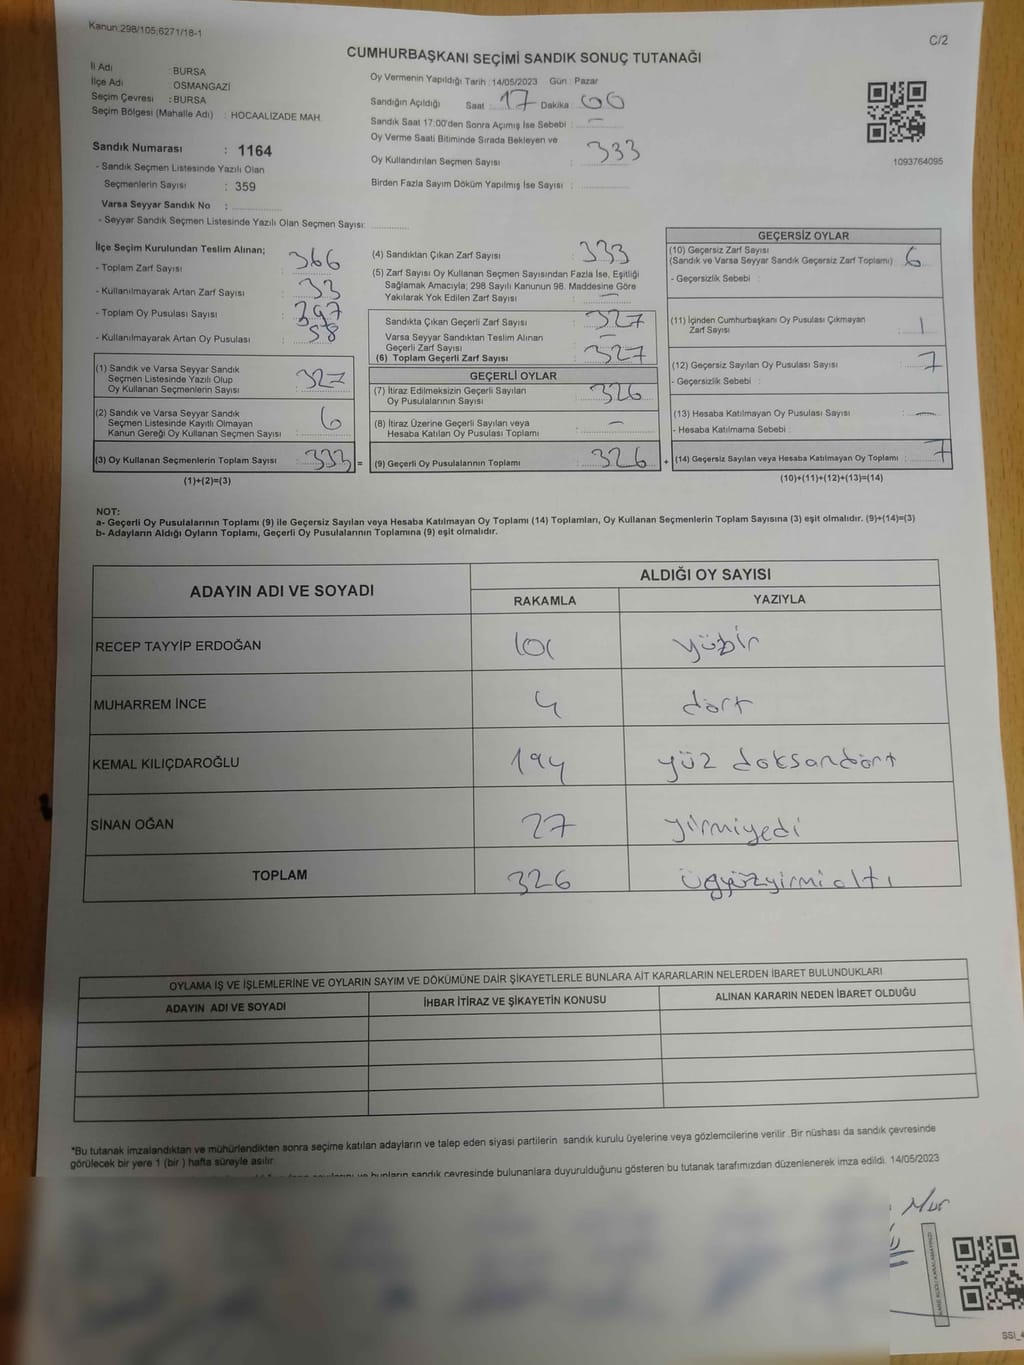 Kanun:298/105;6271/18-1
C/2
CUMHURBAŞKANI SEÇİMİ SANDIK SONUÇ TUTANAĞI
İl Adı : BURSA
İlçe Adı : OSMANGAZİ
Seçim Çevresi : BURSA
Seçim Bölgesi (Mahalle Adı) : HOCAALİZADE MAH.
Sandık Numarası : 1164
- Sandık Seçmen Listesinde Yazılı Olan
Seçmenlerin Sayısı : 359
Varsa Seyyar Sandık No :
- Seyyar Sandık Seçmen Listesinde Yazılı Olan Seçmen Sayısı:
Oy Vermenin Yapıldığı Tarih :14/05/2023 Gün : Pazar
Sandığın Açıldığı Saat : 17 Dakika : 00
Sandık Saat 17:00'den Sonra Açımış İse Sebebi : -
Oy Verme Saati Bitiminde Sırada Bekleyen ve
Oy Kullandırılan Seçmen Sayısı : 333
Birden Fazla Sayım Döküm Yapılmış İse Sayısı :
1093764095
İlçe Seçim Kurulundan Teslim Alınan;
- Toplam Zarf Sayısı : 366
- Kullanılmayarak Artan Zarf Sayısı : 33
- Toplam Oy Pusulası Sayısı : 397
- Kullanılmayarak Artan Oy Pusulası : 58
(1) Sandık ve Varsa Seyyar Sandık
Seçmen Listesinde Yazılı Olup
Oy Kullanan Seçmenlerin Sayısı : 327
(2) Sandık ve Varsa Seyyar Sandık
Seçmen Listesinde Kayıtlı Olmayan
Kanun Gereği Oy Kullanan Seçmen Sayısı : 6
(3) Oy Kullanan Seçmenlerin Toplam Sayısı : 333 =
(1)+(2)=(3)
(4) Sandıktan Çıkan Zarf Sayısı : 333
(5) Zarf Sayısı Oy Kullanan Seçmen Sayısından Fazla İse, Eşitliği
Sağlamak Amacıyla; 298 Sayılı Kanunun 98. Maddesine Göre
Yakılarak Yok Edilen Zarf Sayısı : -
Sandıkta Çıkan Geçerli Zarf Sayısı : 327
Varsa Seyyar Sandıktan Teslim Alınan
Geçerli Zarf Sayısı : -
(6) Toplam Geçerli Zarf Sayısı : 327
GEÇERLİ OYLAR
(7) İtiraz Edilmeksizin Geçerli Sayılan
Oy Pusulalarının Sayısı : 326
(8) İtiraz Üzerine Geçerli Sayılan veya
Hesaba Katılan Oy Pusulası Toplamı : -
(9) Geçerli Oy Pusulalarının Toplamı : 326 +
GEÇERSİZ OYLAR
(10) Geçersiz Zarf Sayısı
(Sandık ve Varsa Seyyar Sandık Geçersiz Zarf Toplamı) : 6
- Geçersizlik Sebebi :
(11) İçinden Cumhurbaşkanı Oy Pusulası Çıkmayan
Zarf Sayısı : 1
(12) Geçersiz Sayılan Oy Pusulası Sayısı : 7
- Geçersizlik Sebebi :
(13) Hesaba Katılmayan Oy Pusulası Sayısı : -
- Hesaba Katılmama Sebebi :
(14) Geçersiz Sayılan veya Hesaba Katılmayan Oy Toplamı : 7
(10)+(11)+(12)+(13)=(14)
NOT:
a- Geçerli Oy Pusulalarının Toplamı (9) ile Geçersiz Sayılan veya Hesaba Katılmayan Oy Toplamı (14) Toplamları, Oy Kullanan Seçmenlerin Toplam Sayısına (3) eşit olmalıdır. (9)+(14)=(3)
b- Adayların Aldığı Oyların Toplamı, Geçerli Oy Pusulalarının Toplamına (9) eşit olmalıdır.
ADAYIN ADI VE SOYADI
ALDIĞI OY SAYISI
RAKAMLA YAZIYLA
RECEP TAYYİP ERDOĞAN 101 yüzbir
MUHARREM İNCE 4 dört
KEMAL KILIÇDAROĞLU 194 yüz doksandört
SİNAN OĞAN 27 yirmiyedi
TOPLAM 326 üçyüzyirmi altı
OYLAMA İŞ VE İŞLEMLERİNE VE OYLARIN SAYIM VE DÖKÜMÜNE DAİR ŞİKAYETLERLE BUNLARA AİT KARARLARIN NELERDEN İBARET BULUNDUKLARI
ADAYIN ADI VE SOYADI İHBAR İTİRAZ VE ŞİKAYETİN KONUSU ALINAN KARARIN NEDEN İBARET OLDUĞU
*Bu tutanak imzalandıktan ve mühürlendikten sonra seçime katılan adayların ve talep eden siyasi partilerin sandık kurulu üyelerine veya gözlemcilerine verilir .Bir nüshası da sandık çevresinde
görülecek bir yere 1 (bir ) hafta süreyle asılır.
ve bunların sandık çevresinde bulunanlara duyurulduğunu gösteren bu tutanak tarafımızdan düzenlenerek imza edildi. 14/05/2023